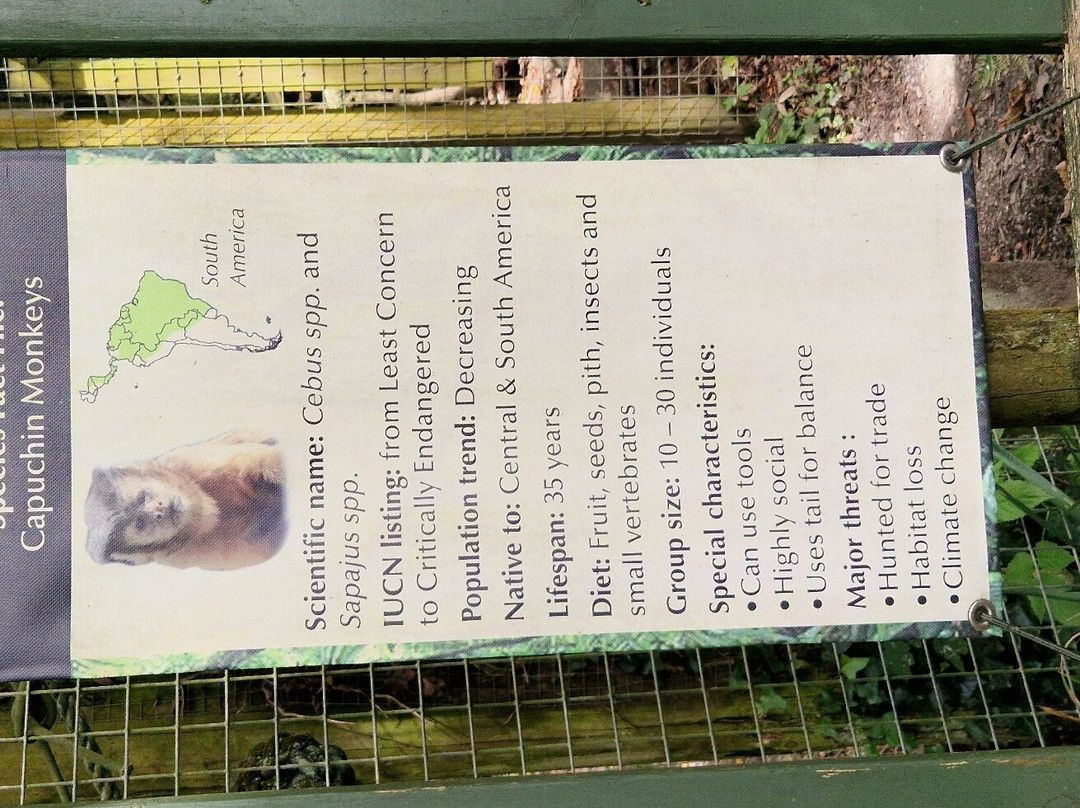 Species Fact File:
Capuchin Monkeys
South
America
Scientific name: Cebus spp. and
Sapajus spp.
IUCN listing: from Least Concern
to Critically Endangered
Population trend: Decreasing
Native to: Central & South America
Lifespan: 35 years
Diet: Fruit, seeds, pith, insects and
small vertebrates
Group size: 10 – 30 individuals
Special characteristics:
• Can use tools
• Highly social
• Uses tail for balance
Major threats :
• Hunted for trade
• Habitat loss
• Climate change